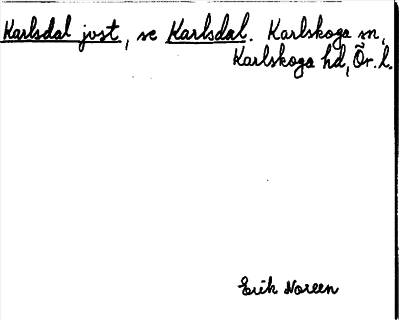 Karlsdal jvst, se Karlsdal. Karlskoga sn,
Karlskoga hd, Ör. l.
Erik Noreen